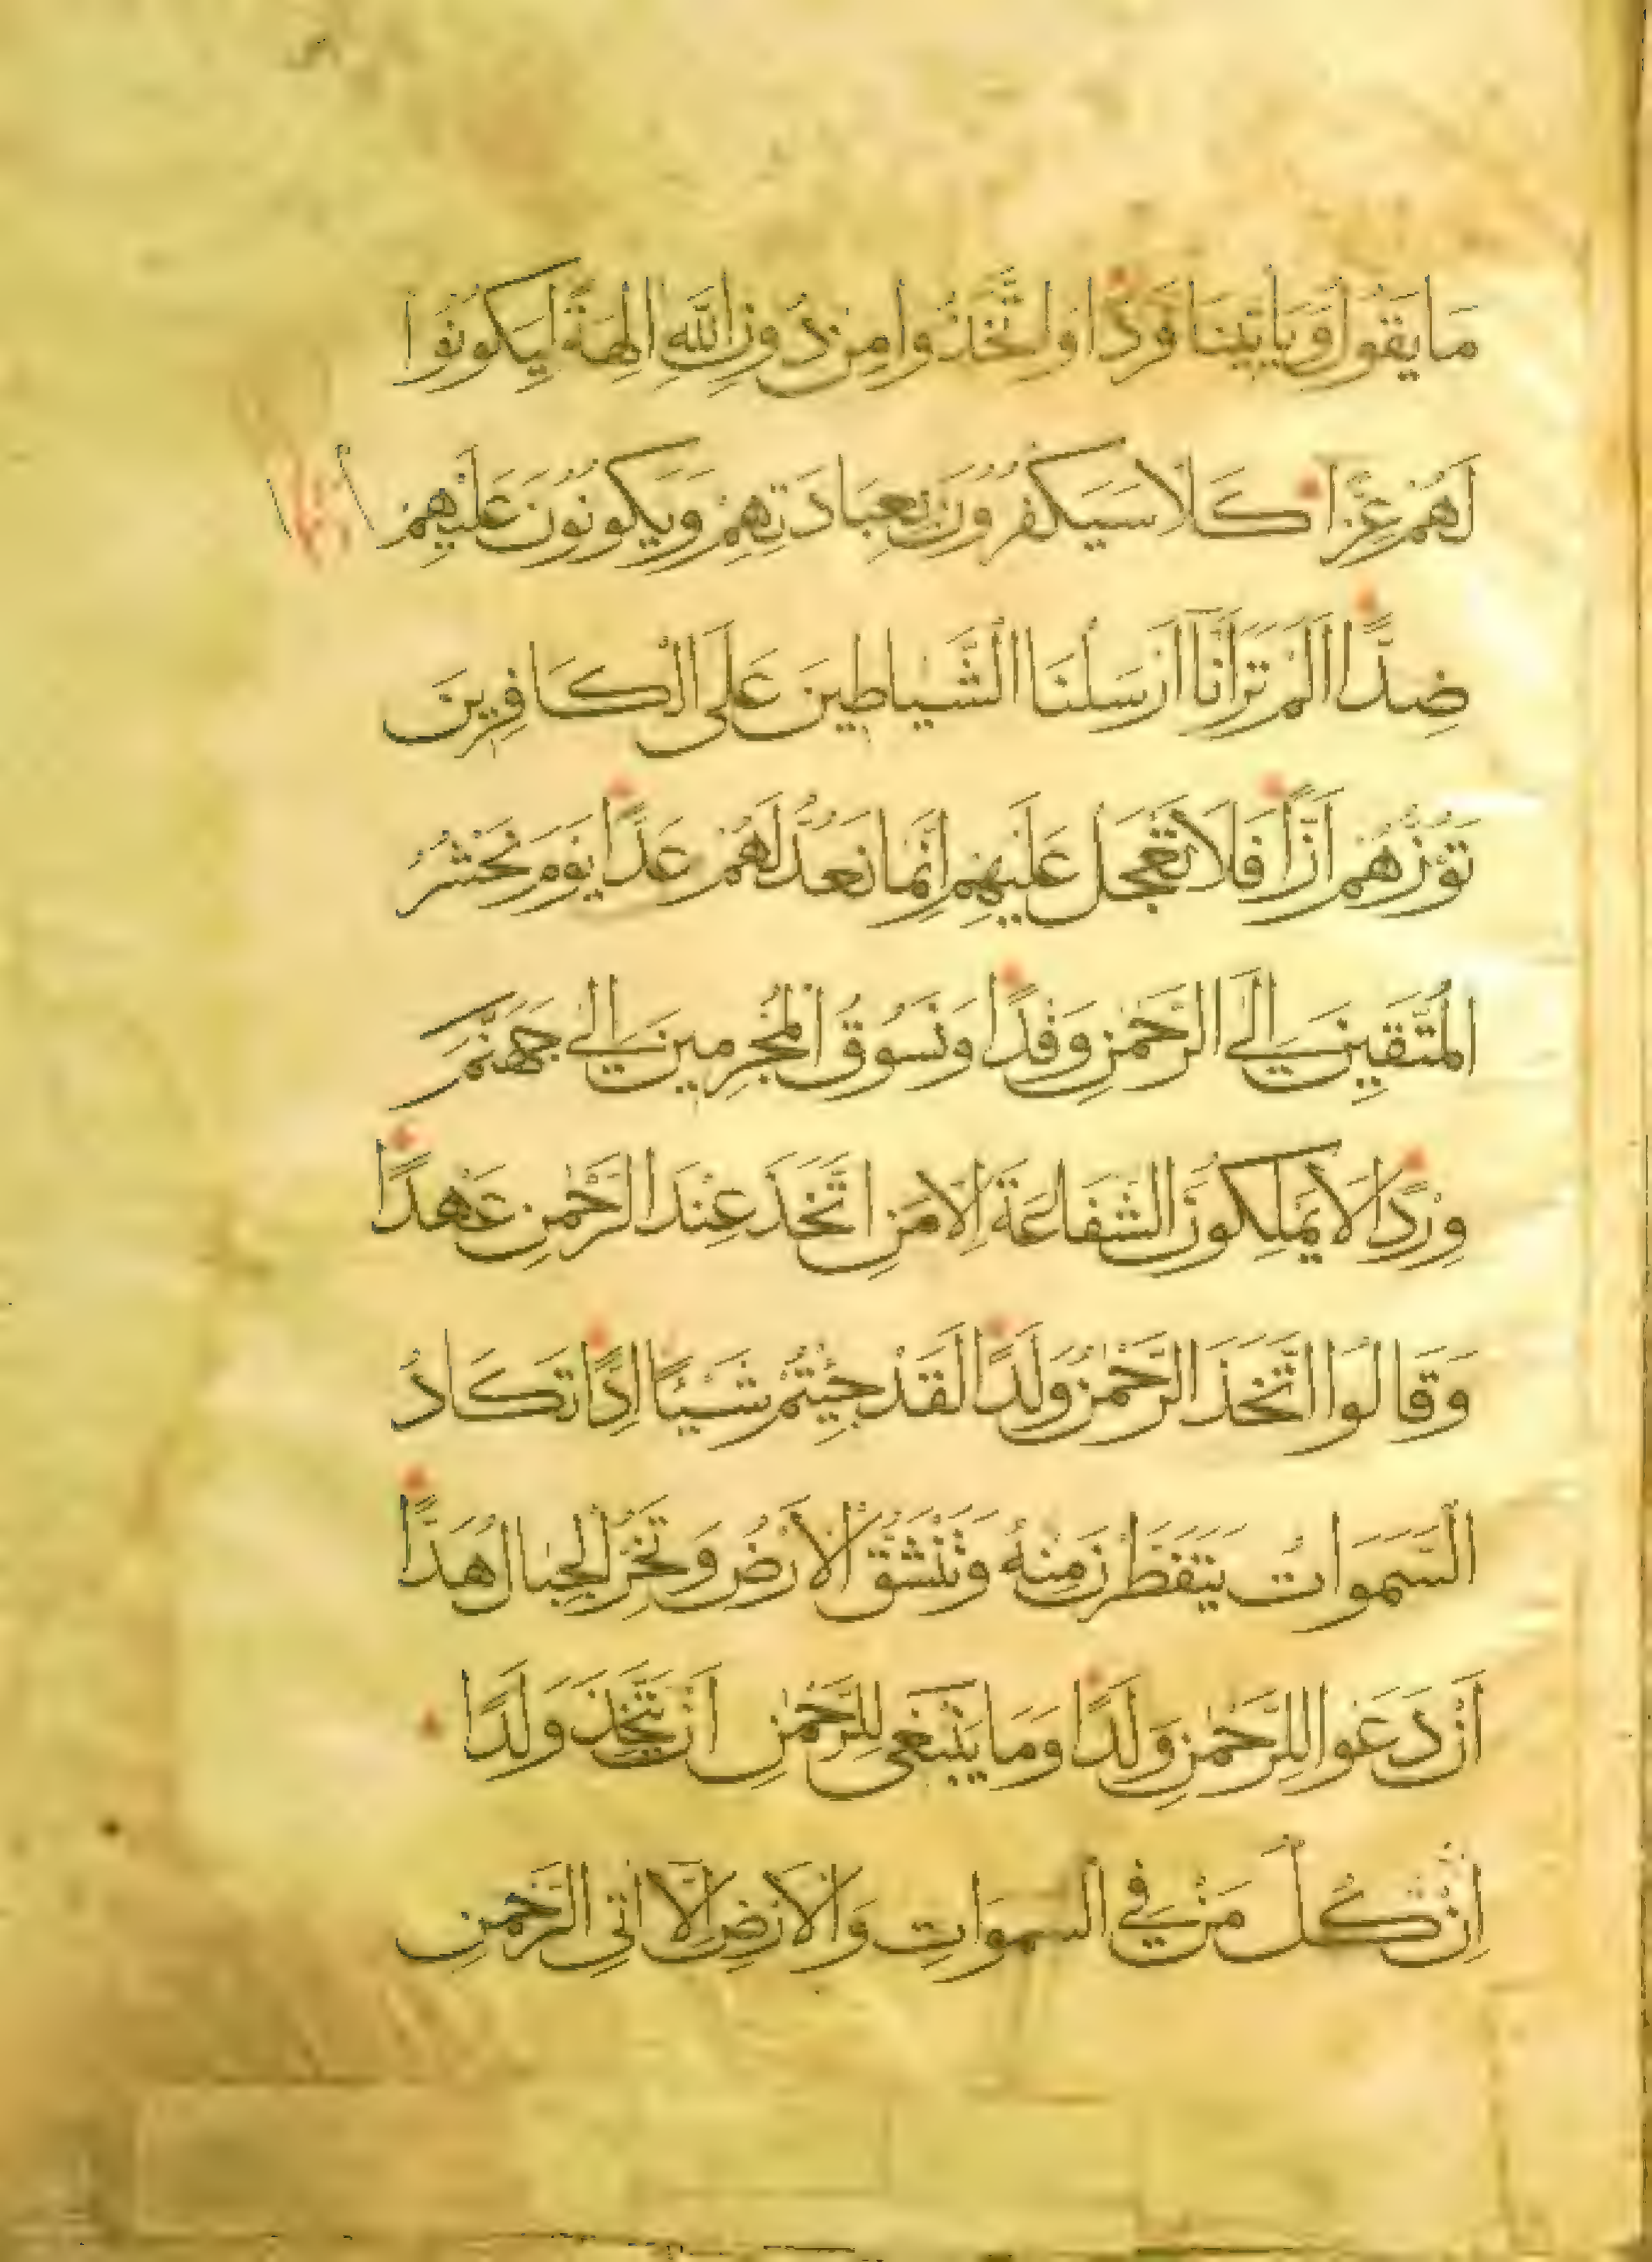 مَا يَقُولُ وَيَأْتِينَا فَرْدًا وَاتَّخَذُوا مِنْ دُونِ اللَّهِ الِهَةً لِيَكُونُوا
لَهُمْ عِزًّا كَلَّا سَيَكْفُرُونَ بِعِبَادَتِهِمْ وَيَكُونُونَ عَلَيْهِمْ
ضِدًّا اَلَمْ تَرَ اَنَّا اَرْسَلْنَا الشَّيَاطِينَ عَلَى الْكَافِرِينَ
تَؤُزُّهُمْ اَزًّا فَلَا تَعْجَلْ عَلَيْهِمْ اِنَّمَا نَعُدُّ لَهُمْ عَدًّا يَوْمَ نَحْشُرُ
الْمُتَّقِينَ اِلَى الرَّحْمٰنِ وَفْدًا وَنَسُوقُ الْمُجْرِمِينَ اِلٰى جَهَنَّمَ
وِرْدًا لَا يَمْلِكُونَ الشَّفَاعَةَ اِلَّا مَنِ اتَّخَذَ عِنْدَ الرَّحْمٰنِ عَهْدًا
وَقَالُوا اتَّخَذَ الرَّحْمٰنُ وَلَدًا لَقَدْ جِئْتُمْ شَيْئًا اِدًّا تَكَادُ
السَّمَوَاتُ يَتَفَطَّرْنَ مِنْهُ وَتَنْشَقُّ الْاَرْضُ وَتَخِرُّ الْجِبَالُ هَدًّا
اَنْ دَعَوْا لِلرَّحْمٰنِ وَلَدًا وَمَا يَنْبَغِي لِلرَّحْمٰنِ اَنْ يَتَّخِذَ وَلَدًا
اِنْ كُلُّ مَنْ فِي السَّمَوَاتِ وَالْاَرْضِ اِلَّا اٰتِي الرَّحْمٰنِ